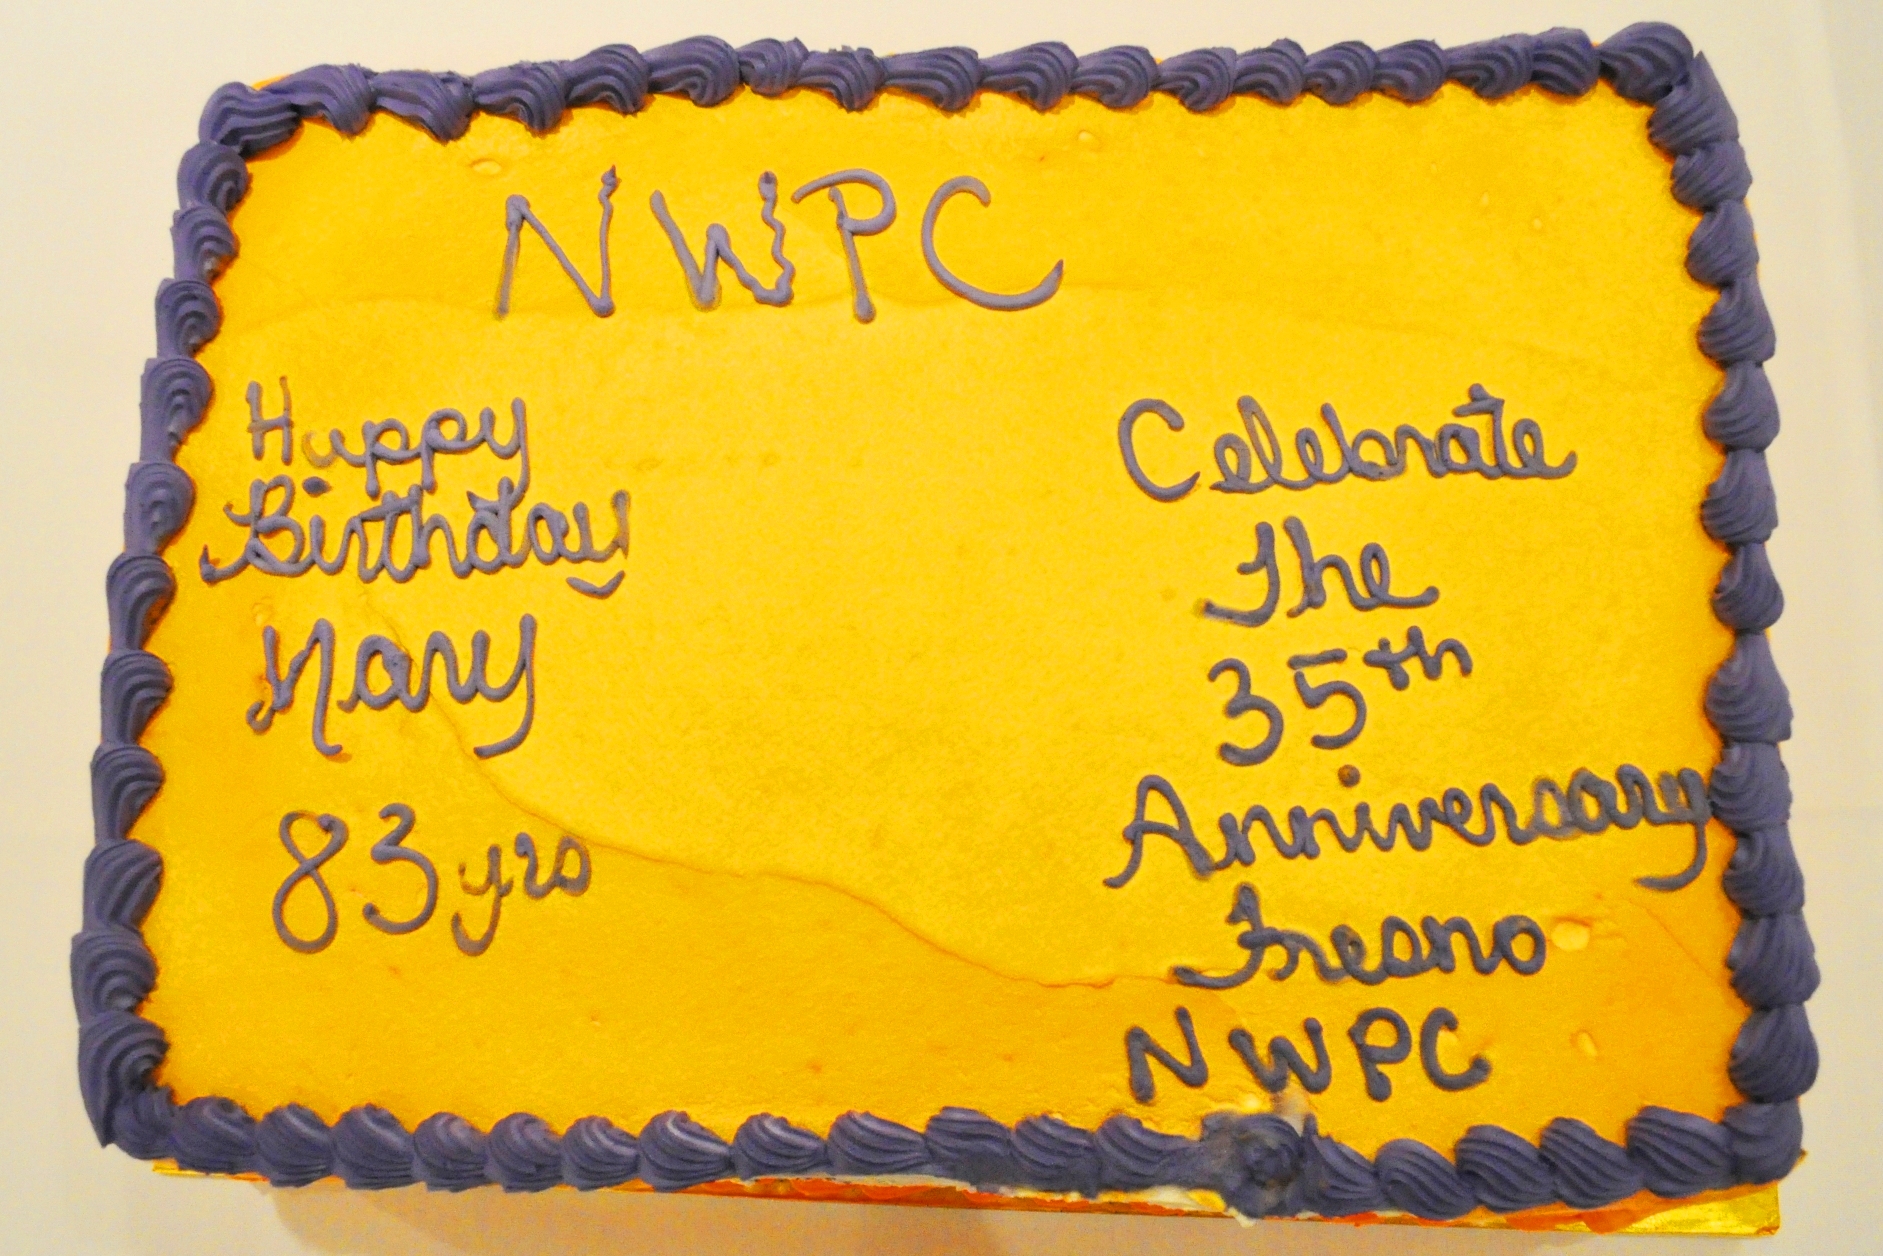 NWPC
Happy
Birthday
Mary
83 yrs
Celebrate
The
35th
Anniversary
Fresno
NWPC